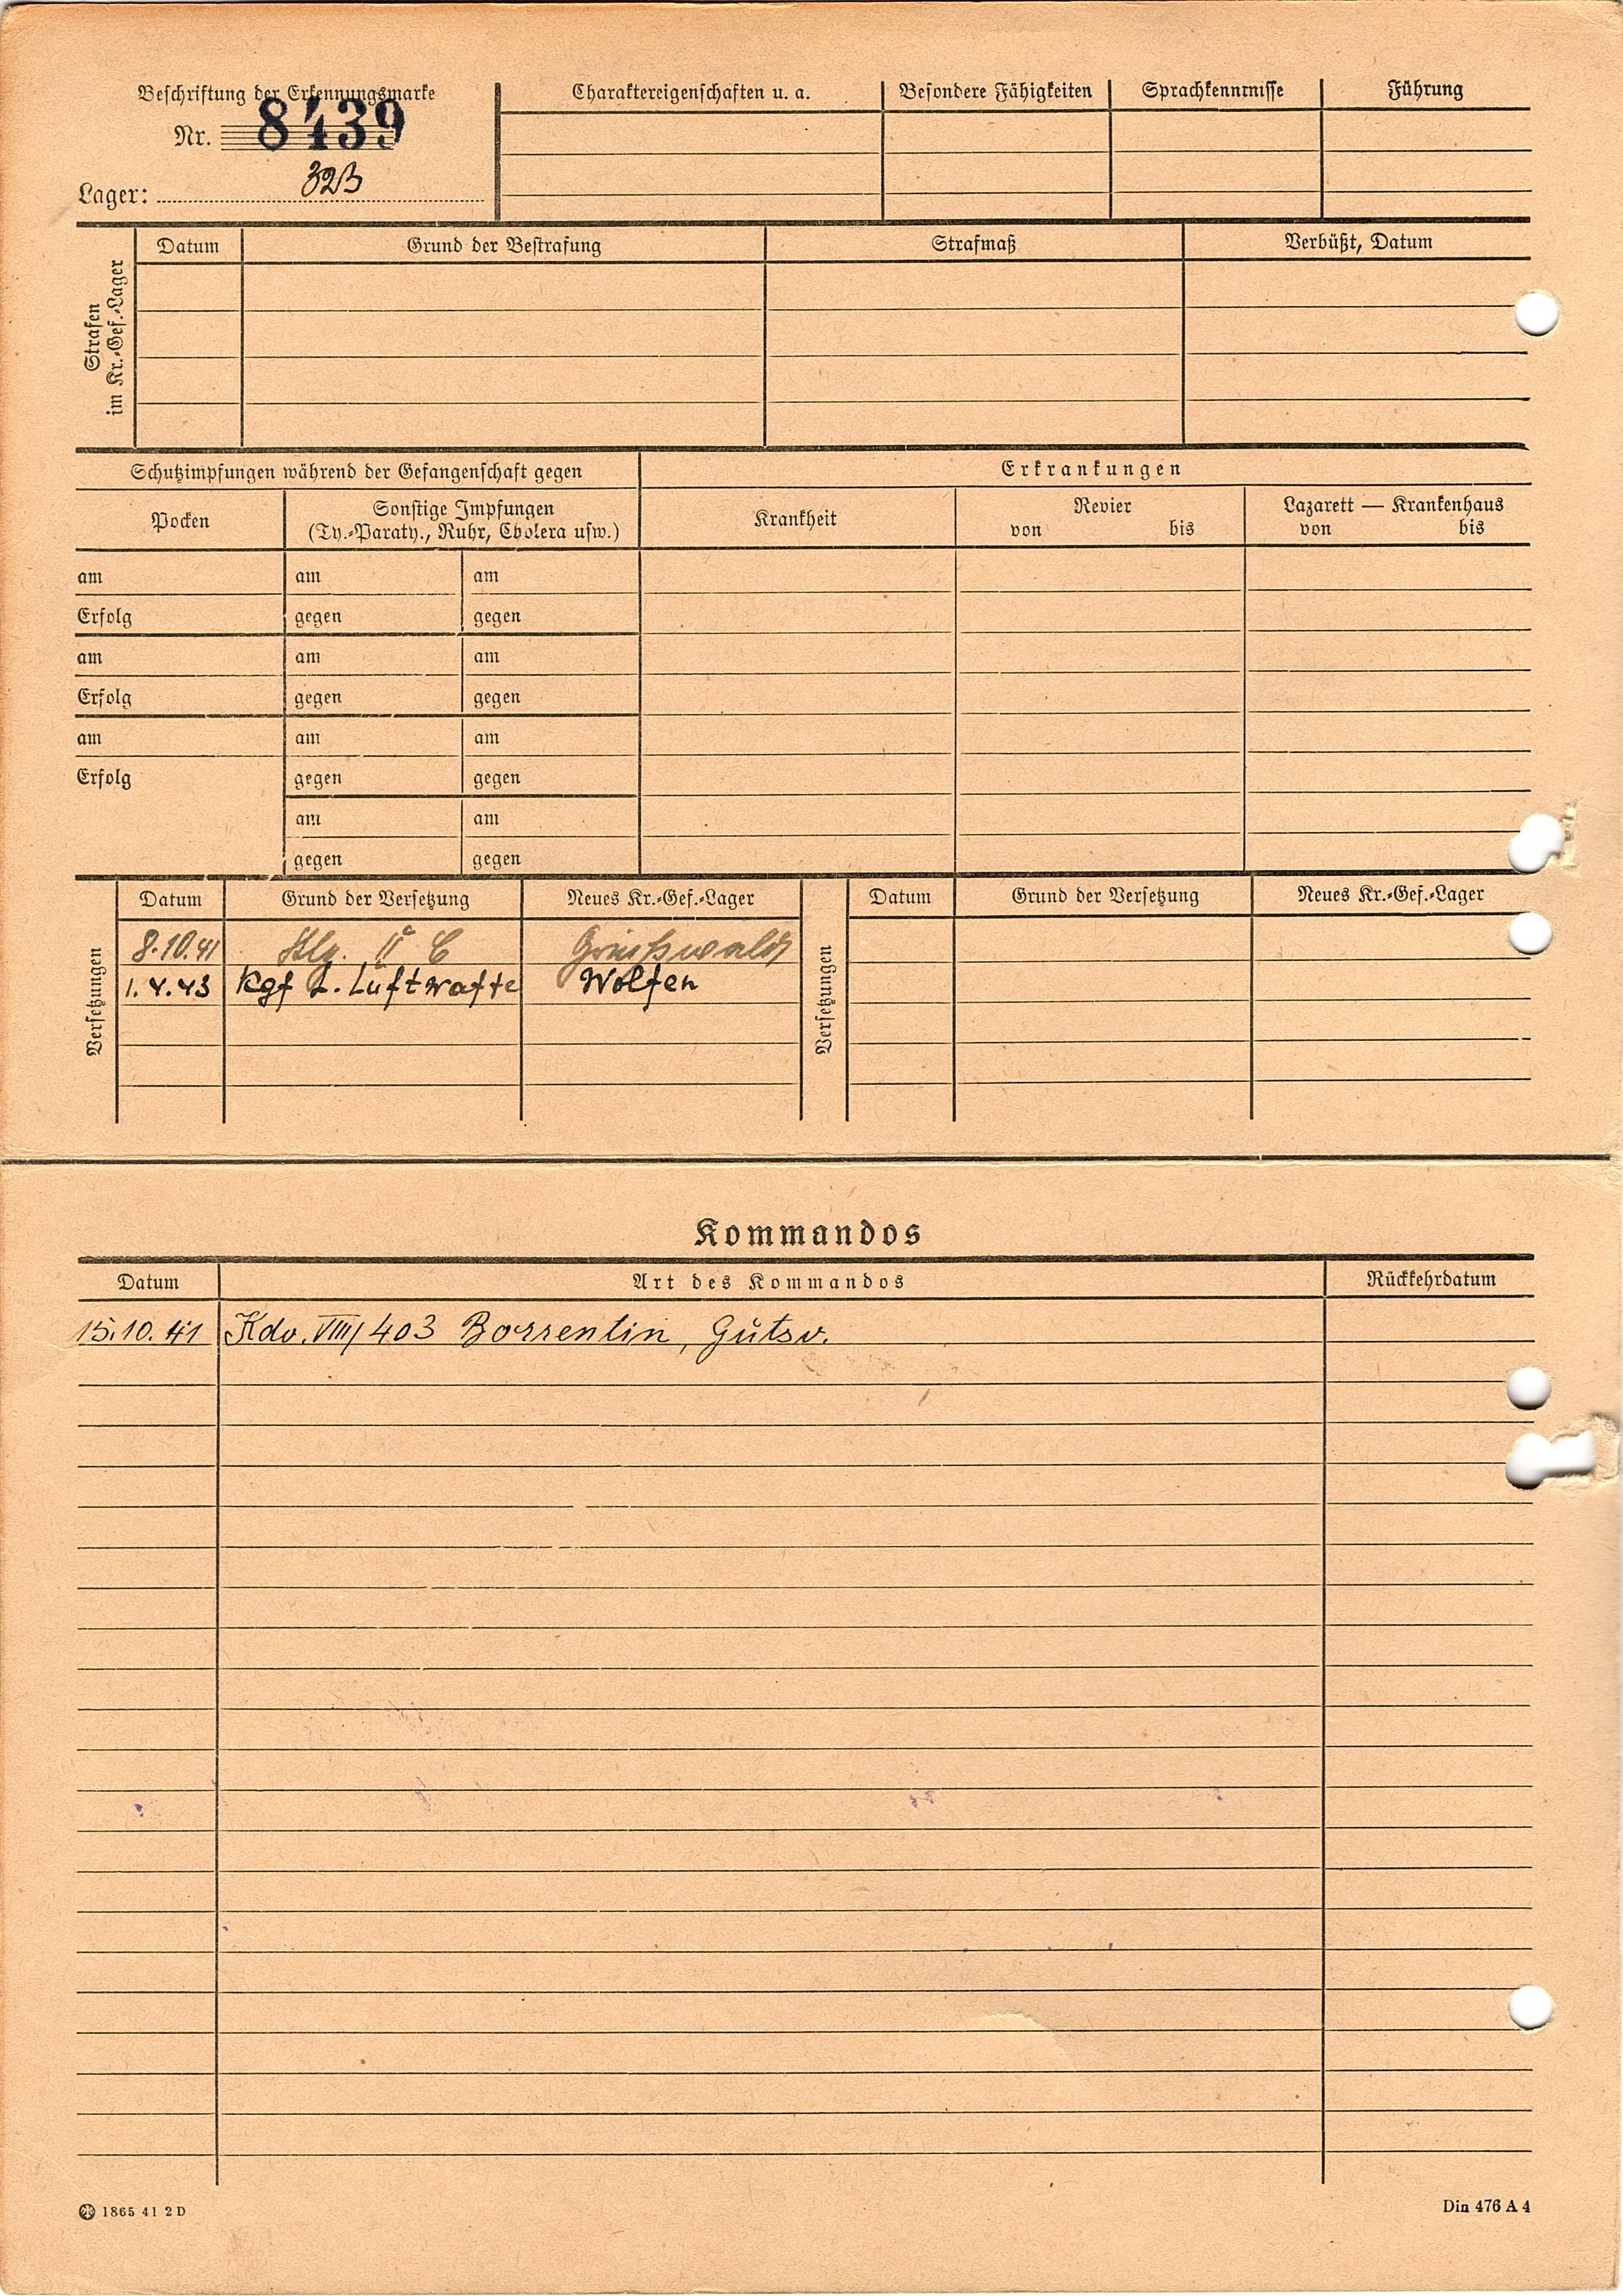 Beschriftung der Erkennungsmarke
Nr. 8439
Lager: 323
Charaktereigenschaften u. a. Besondere Fähigkeiten Sprachkenntnisse Führung
Strafen
im Kr.-Gef.-Lager
Datum Grund der Bestrafung Strafmaß Verbüßt, Datum
Schutzimpfungen während der Gefangenschaft gegen
Erkrankungen
Pocken
Sonstige Impfungen
(Ty.-Paraty., Ruhr, Cholera usw.)
Krankheit
Revier
von bis
Lazarett — Krankenhaus
von bis
am am am
Erfolg gegen gegen
am am am
Erfolg gegen gegen
am am am
Erfolg gegen gegen
am am
gegen gegen
Versetzungen
Datum Grund der Versetzung Neues Kr.-Gef.-Lager
8.10.41 Stlg. II C Greifswald
1.4.43 Kgf L. Luftwaffe Wolfen
Versetzungen
Datum Grund der Versetzung Neues Kr.-Gef.-Lager
Kommandos
Datum Art des Kommandos Rückkehrdatum
15.10.41 Kdo. VIII/403 Borrentin, Gutsv.
1865 41 2 D
Din 476 A 4